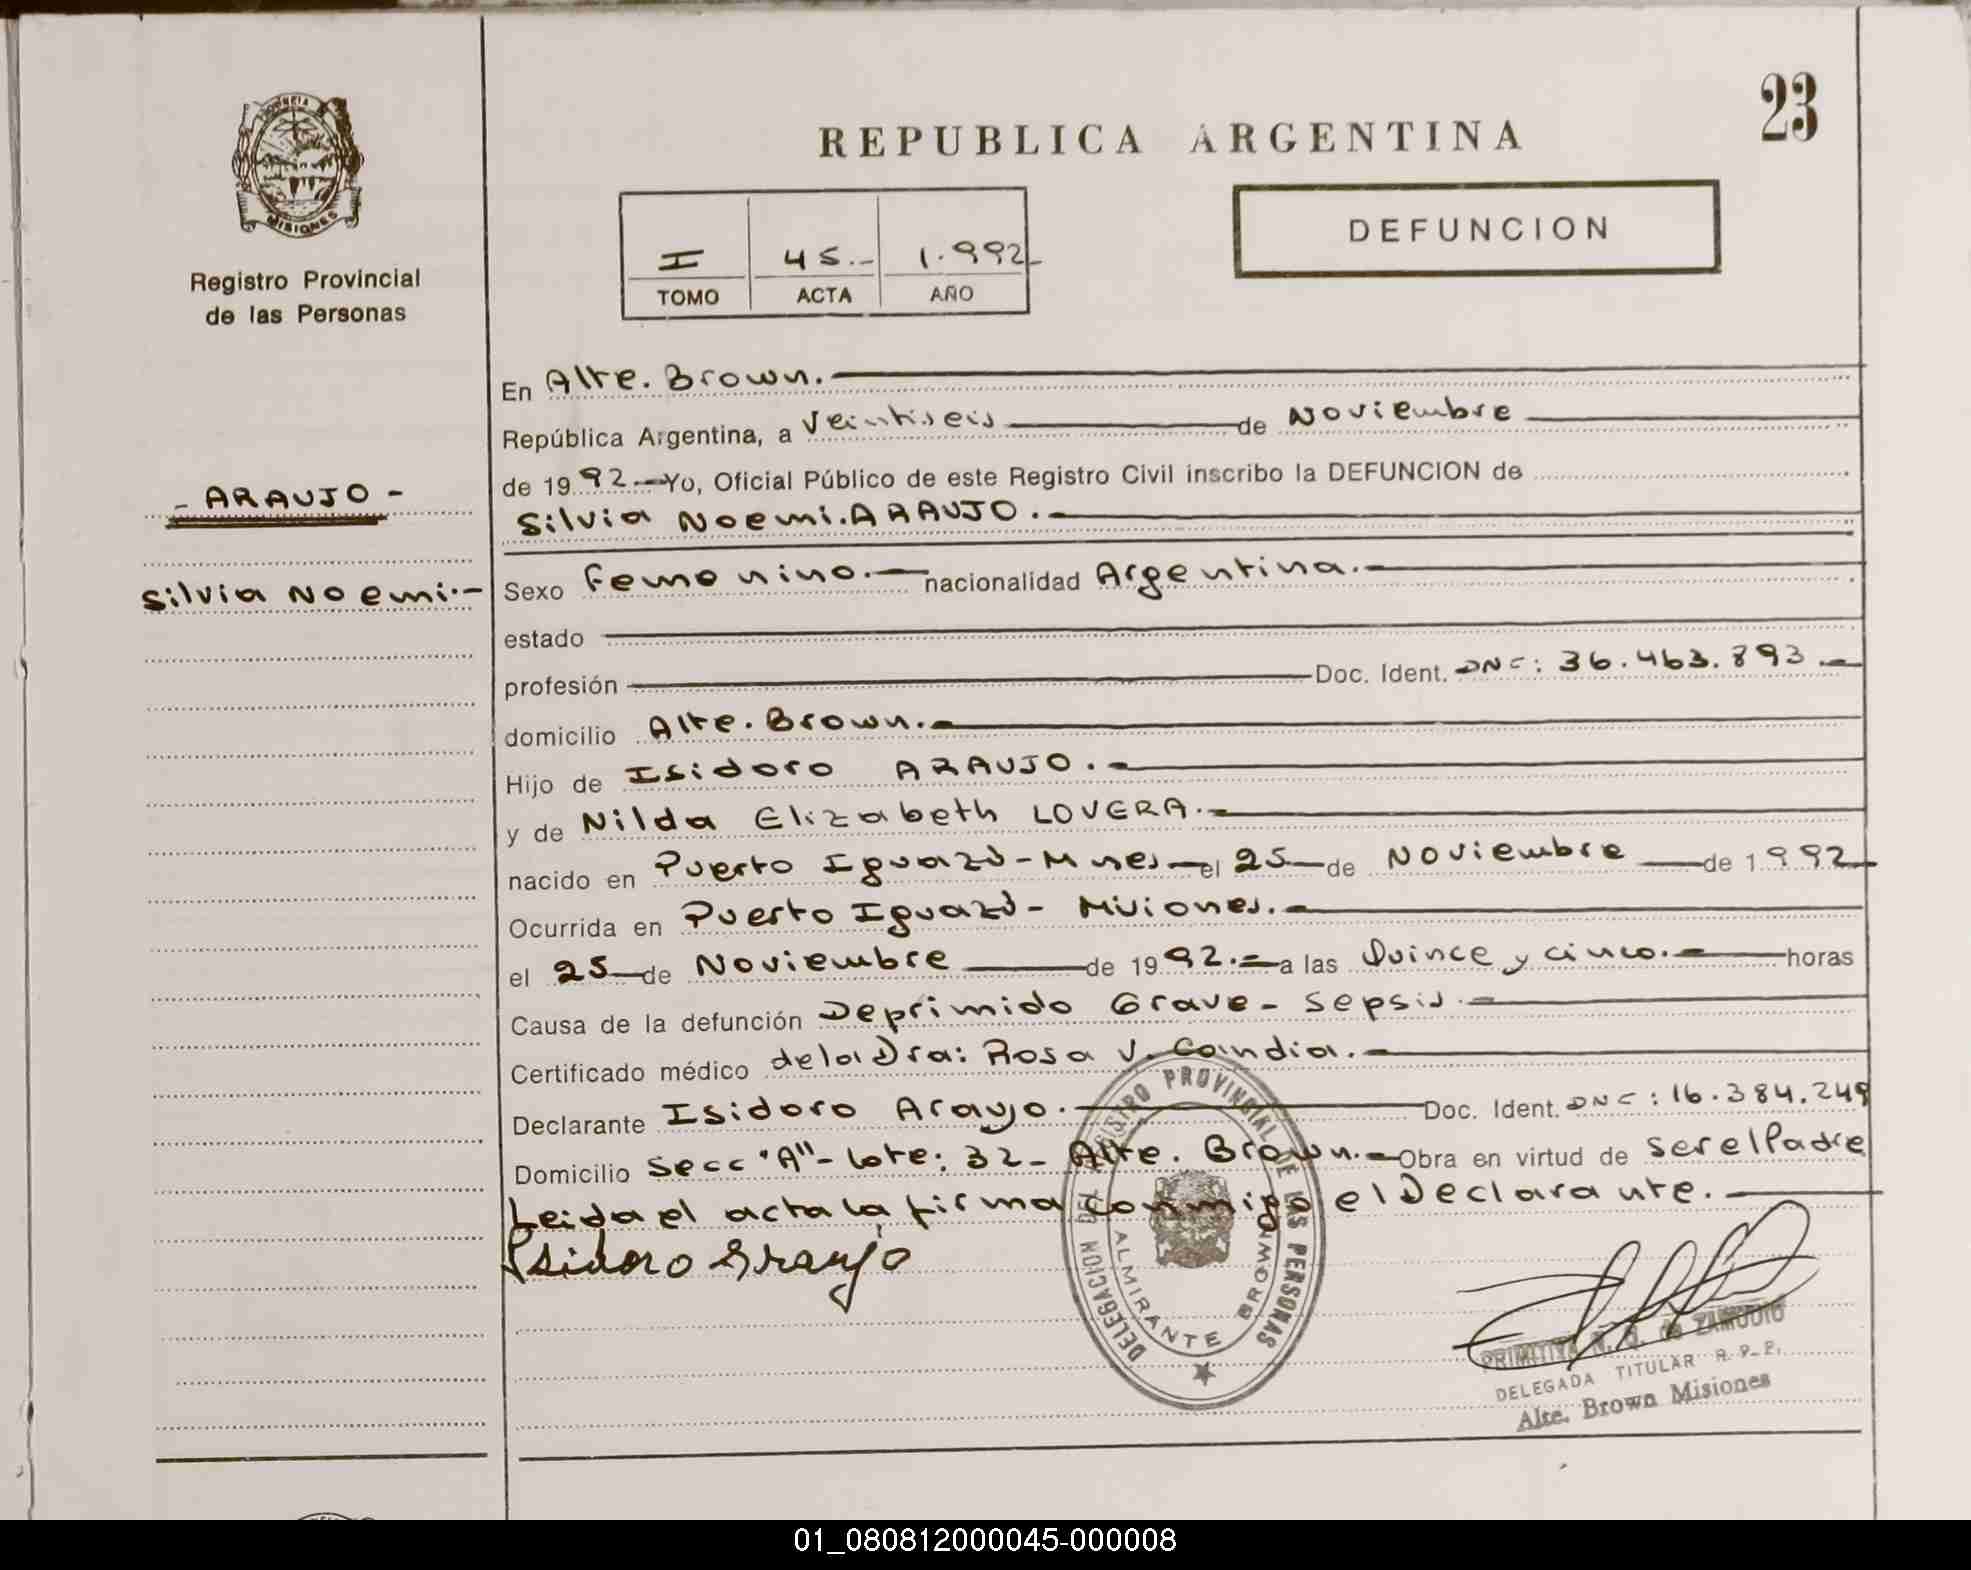 23
PROVINCIA DE
MISIONES
Registro Provincial
de las Personas
REPUBLICA ARGENTINA
DEFUNCION
I 45.- 1.992-
TOMO ACTA AÑO
- ARAUJO -
Silvia Noemi.-
En Alte. Brown.
República Argentina, a Veintiseis de Noviembre
de 1992.- Yo, Oficial Público de este Registro Civil inscribo la DEFUNCION de
Silvia Noemi. ARAUJO.-
Sexo Femenino.- nacionalidad Argentina.-
estado
profesión Doc. Ident. DNC: 36.463.893.-
domicilio Alte. Brown.-
Hijo de Isidoro ARAUJO.-
y de Nilda Elizabeth LOVERA.-
nacido en Puerto Iguazú - Mnes - el 25 de Noviembre de 1.992-
Ocurrida en Puerto Iguazú - Misiones.-
el 25 de Noviembre de 1992.- a las Quince y cinco.- horas
Causa de la defunción Deprimido Grave - Sepsis.-
Certificado médico de la Dra: Rosa V. Candia.-
Declarante Isidoro Araujo.- Doc. Ident. DNC: 16.384.249
Domicilio Secc "A" - Lote: 32 - Alte. Brown.- Obra en virtud de ser el Padre
Leida el acta la firma conmigo el Declarante.-
Isidoro Araujo
DELEGACION DEL REGISTRO PROVINCIAL DE LAS PERSONAS
ALMIRANTE BROWN
PRIMITIVA N. G. de ZAMUDIO
DELEGADA TITULAR R.P.P.
Alte. Brown Misiones
01_080812000045-000008